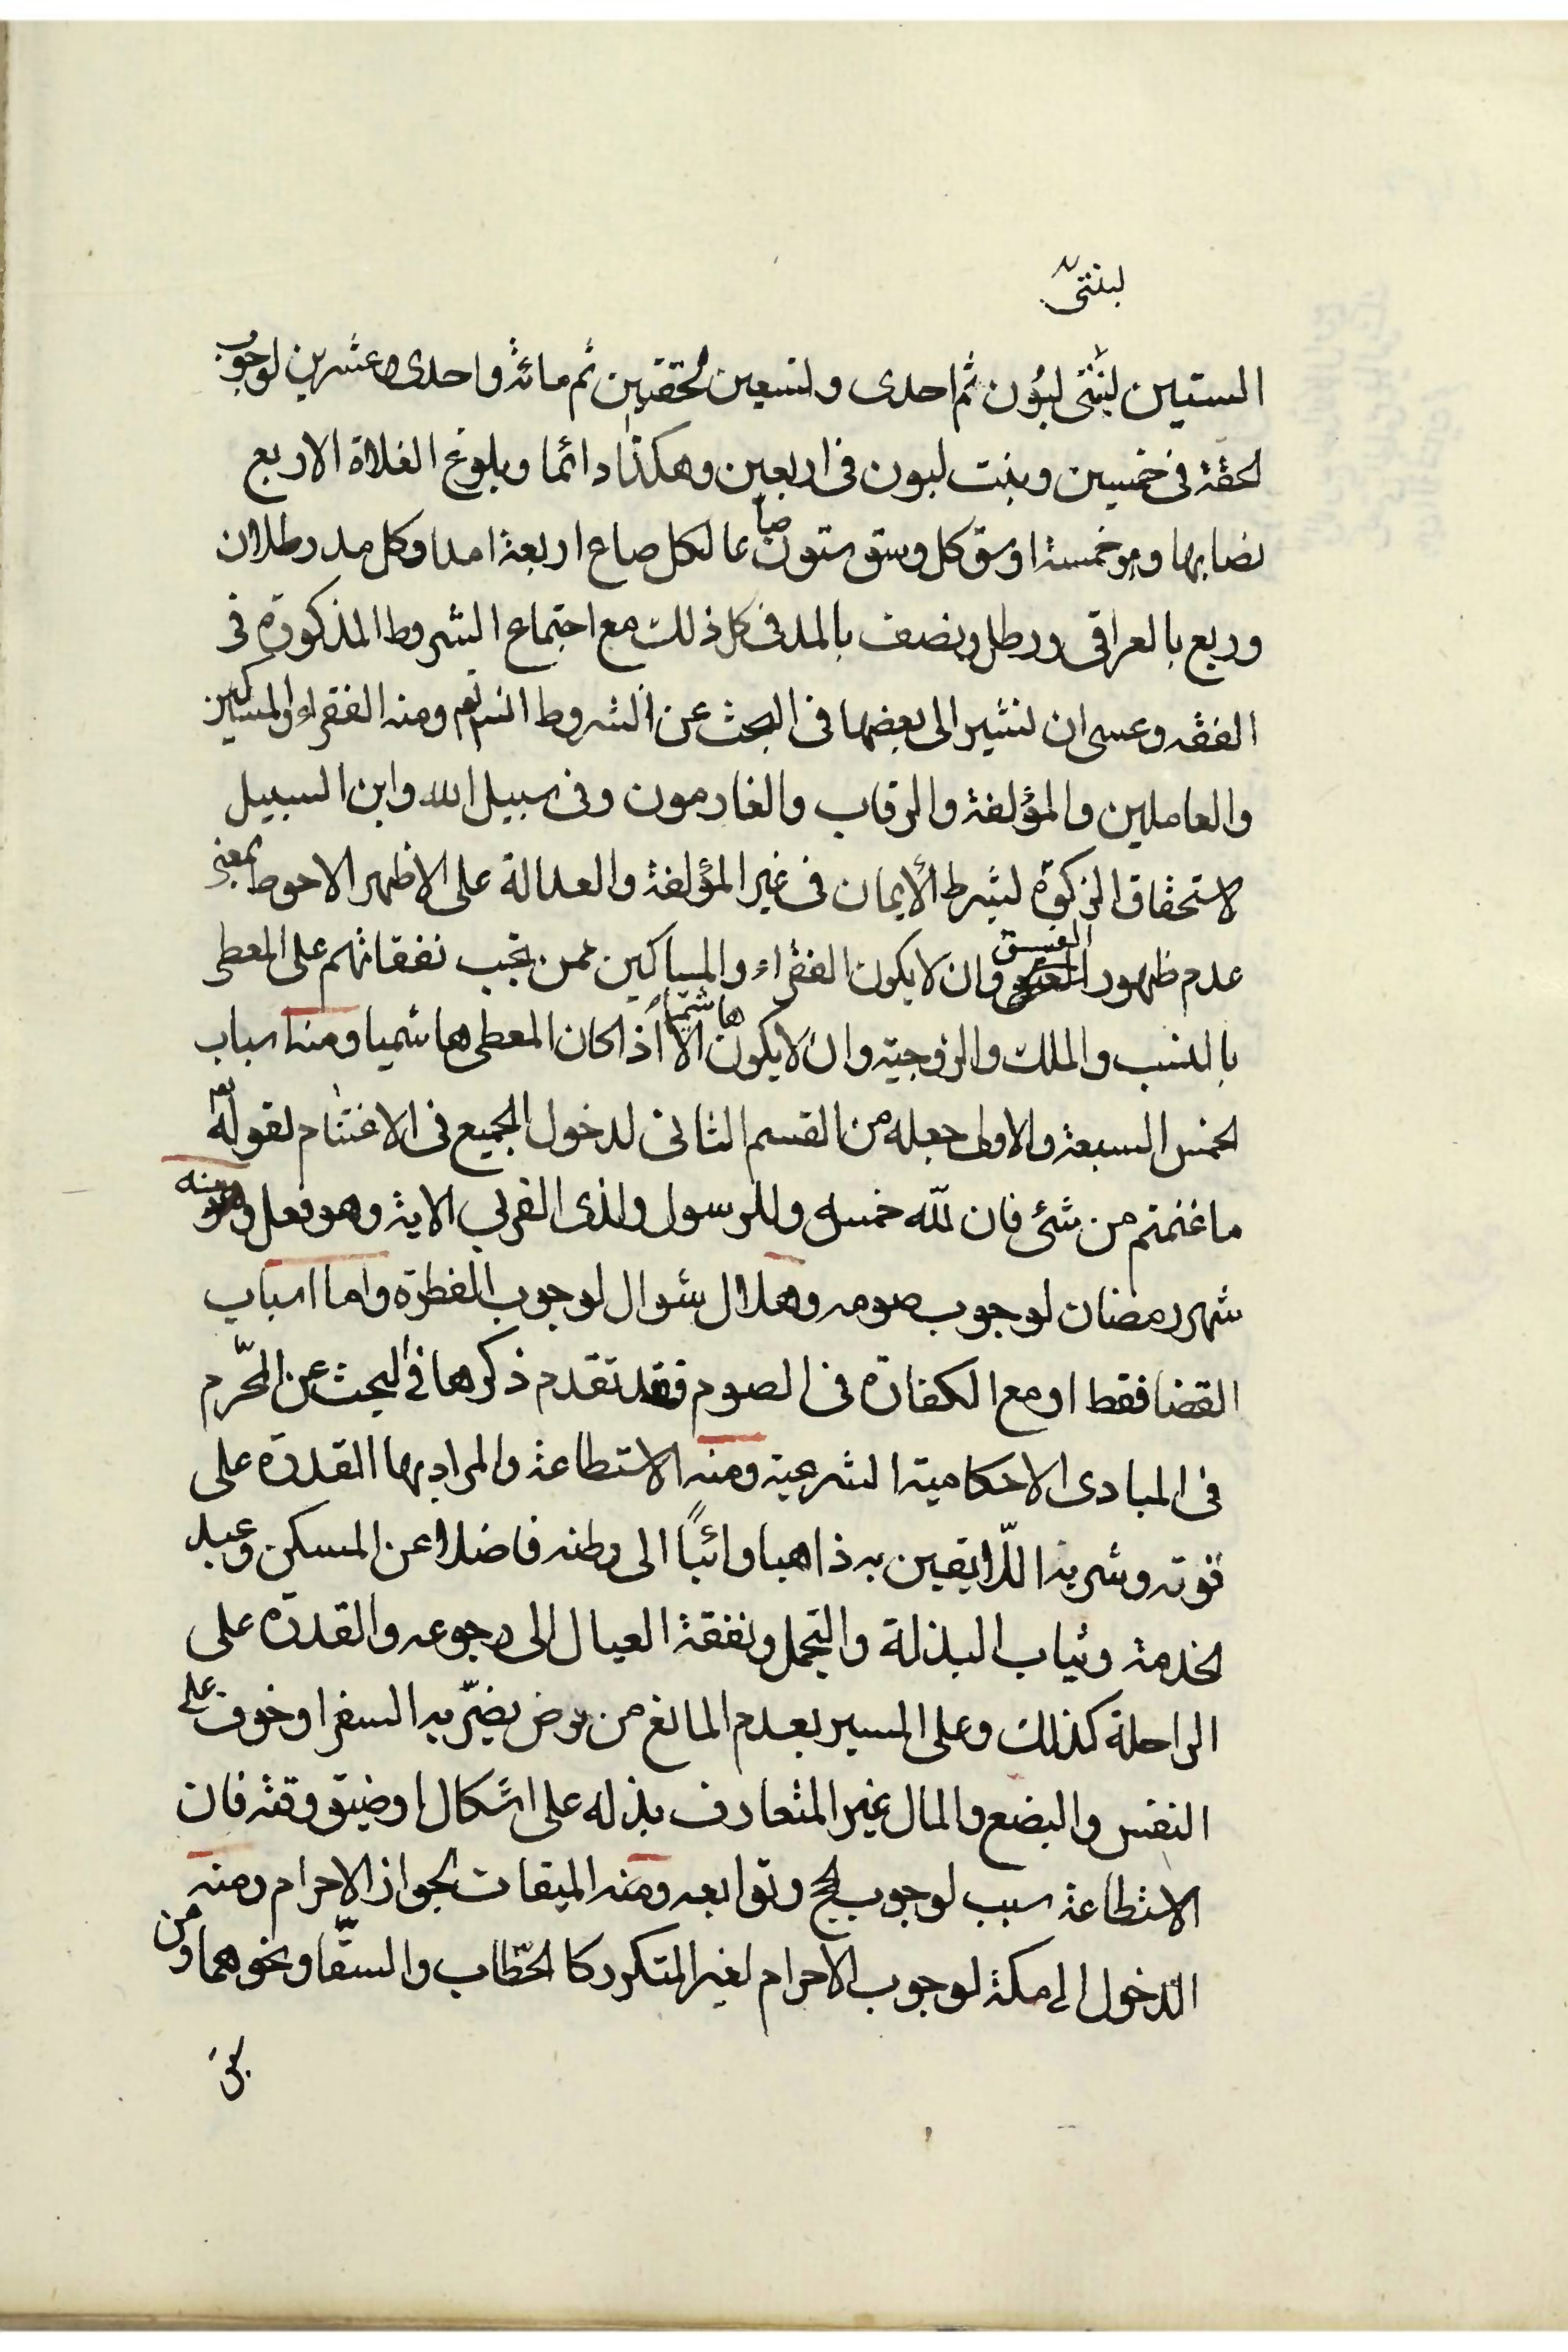 لبنتى
الستين لبنتى لبون ثم احدى ولتسعين لحقتين ثم مائة واحدى وعشرين لوجوب
لحقة فى خمسين وبنت لبون فى اربعين وهكذا دائما وبلوغ الغلاة الاربع
نضابها وهو خمسة اوسق كل وسق ستون صاعا لكل صاع اربعة امدا وكل مد رطلان
وربع بالعراقى ورطل ونصف بالمد فى كل ذلك مع اجتماع الشروط المذكورة فى
الفقه وعسى ان نشير الى بعضها فى البحث عن الشروط انش تعم ومنه الفقراء والمساكين
والعاملين والمؤلفة والرقاب والغارمون وفى سبيل الله وابن السبيل
لاستحقاق الزكوة لشرط الأيمان فى غير المؤلفة والعدالة على الاظهر الاحوط بمعنى
عدم ظهور الفسق وان لا يكون الفقراء والمساكين ممن تجب نفقاتهم على المعطى
بالنسب والملك والزوجية وان لا يكون هاشميا الا اذا كان المعطى هاشميا ومنه اسباب
الخمس السبعة والاولى جعله من القسم الثانى لدخول الجميع فى الاغتنام لقوله تعم
ما غنمتم من شئ فان لله خمسه وللرسول ولذى القربى الاية وهو فعل ومنه
شهر رمضان لوجوب صومه وهلال شوال لوجوب الفطرة واما اسباب
القضا فقط او مع الكفارة فى الصوم فقد تقدم ذكرها فى البحث عن المحّرم
فى المبادى الاحكامية الشرعية ومنه الاستطاعة والمراد بها القدرة على
قوته وشربه اللّايقين به ذاهبا وائبًا الى وطنه فاضلا عن المسكن وعبد
لخدمة وثياب البذلة والتجمل ونفقة العيال الى رجوعه والقدرة على
الراحلة كذلك وعلى المسير بعدم المانع من مرض يضرّ به السفر او خوف على
النفس والبضع والمال غير المتعارف بذله على اشكال او ضيق وقته فان
الاستطاعة سبب لوجوب الحج وتوابعه ومنه الميقات لجواز الاحرام ومنه
الدخول الى مكة لوجوب الاحرام لغير المتكرر كالحطّاب والسقّا ونحوهما ومن